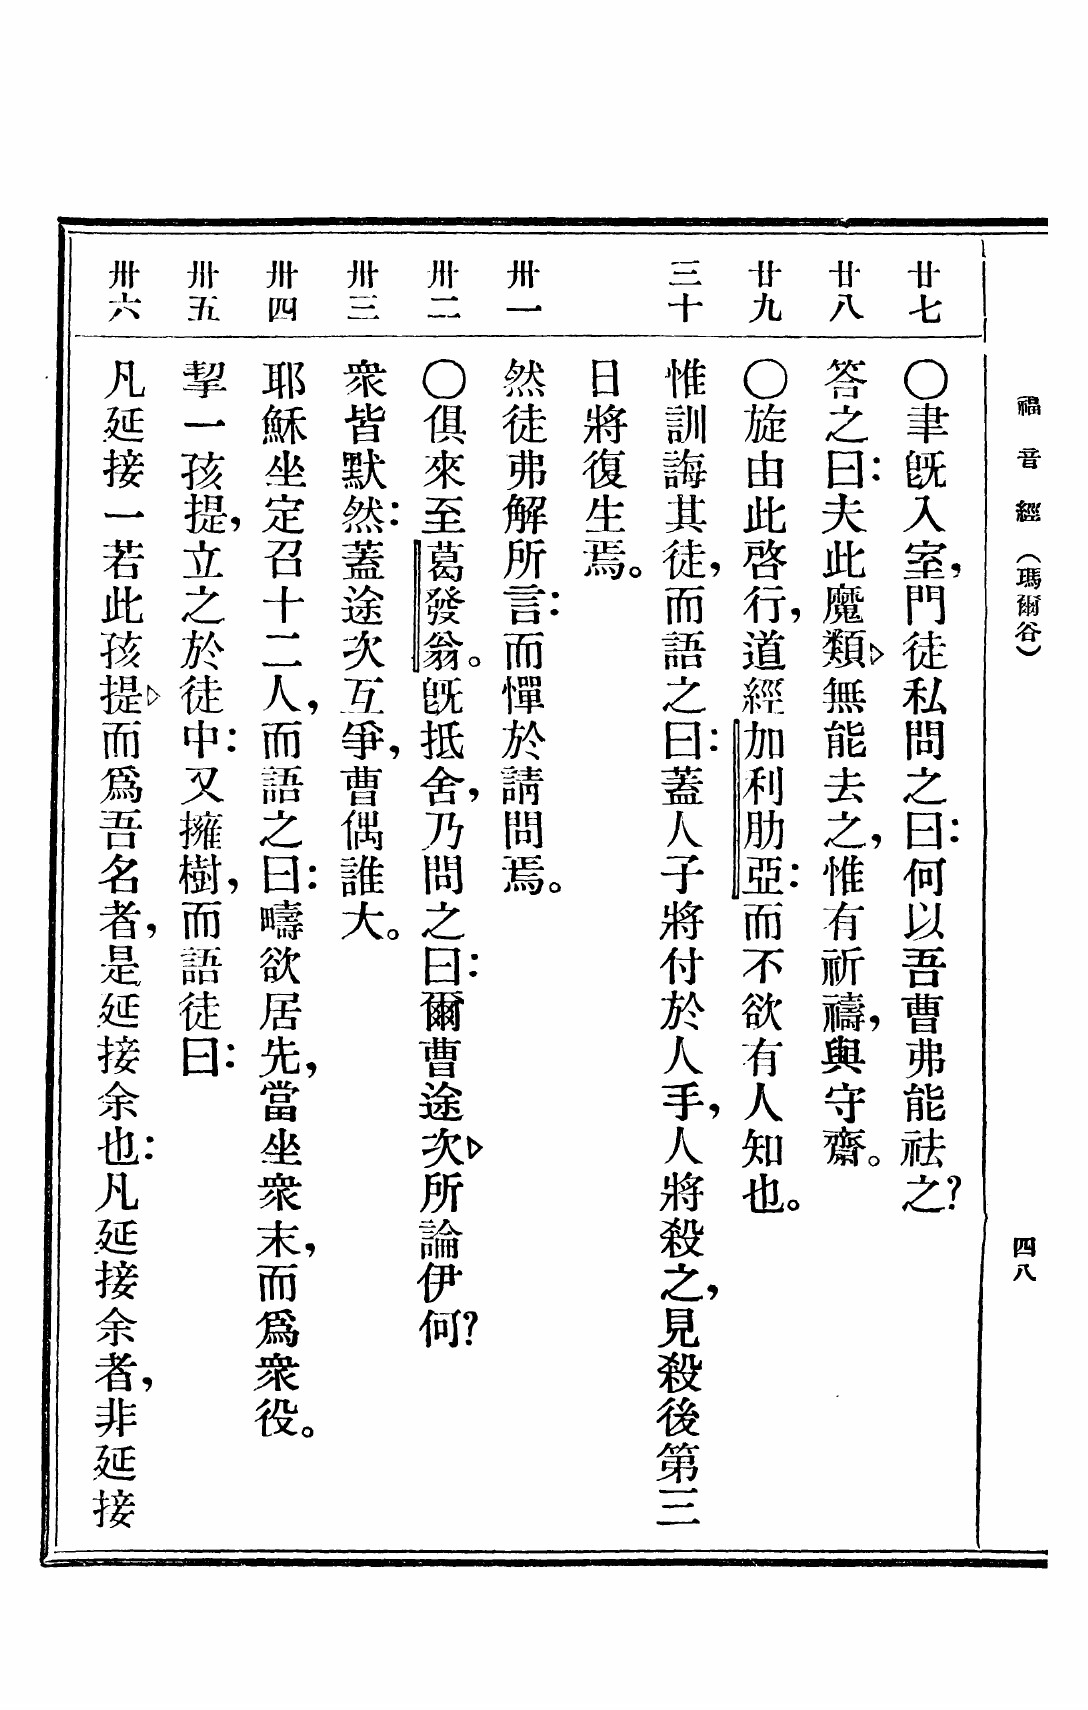 福音經（瑪爾谷）
四八
廿七
〇聿旣入室，門徒私問之曰：何以吾曹弗能祛之？
廿八
答之曰：夫此魔類▷無能去之，惟有祈禱，與守齋。
廿九
〇旋由此啓行，道經加利肋亞：而不欲有人知也。
三十
惟訓誨其徒，而語之曰：蓋人子將付於人手，人將殺之，見殺後第三
日將復生焉。
卅一
然徒弗解所言：而憚於請問焉。
卅二
〇俱來至葛發翁。旣抵舍，乃問之曰：爾曹途次▷所論伊何？
卅三
衆皆默然：蓋途次互爭，曹偶誰大。
卅四
耶穌坐定召十二人，而語之曰：疇欲居先，當坐衆末，而爲衆役。
卅五
挈一孩提，立之於徒中：又擁樹，而語徒曰：
卅六
凡延接一若此孩提▷而爲吾名者，是延接余也：凡延接余者，非延接